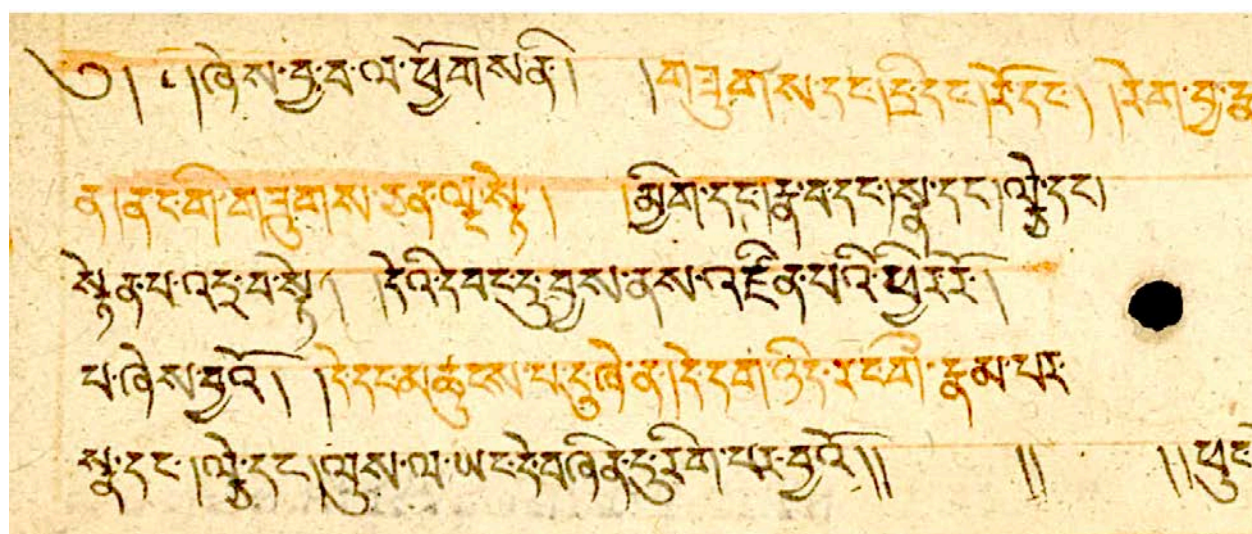 ༄། །ཞེས་བྱ་བ་ལ་ཕྱོགས་ནི། །གཟུགས་དང་། དྲི་དང་། རོ་དང་། །རེག་བྱ་
ན། ནང་གི་གཟུགས་ཅན་ལྔ་སྟེ། །མྱིག་དང་། རྣ་བ་དང་། སྣ་དང་། ལྕེ་དང་།
སྟེན་པ་འདྲ་བ་སྟེ། །དེའི་དབང་དུ་བྱས་ནས་འཛིན་པའི་ཕྱིར་རོ།
པ་ཞེས་བྱའོ། །དེ་དང་མཚུངས་པ་དུ་ཞེ་ན། དེ་དག་ཉིད་རང་གི་རྣམ་པར་
སྣ་དང་། ལྕེ་དང་། ལུས་ལ་ཡང་དེ་བཞིན་དུ་རིག་པར་བྱའོ།། །། །།ཕུང་